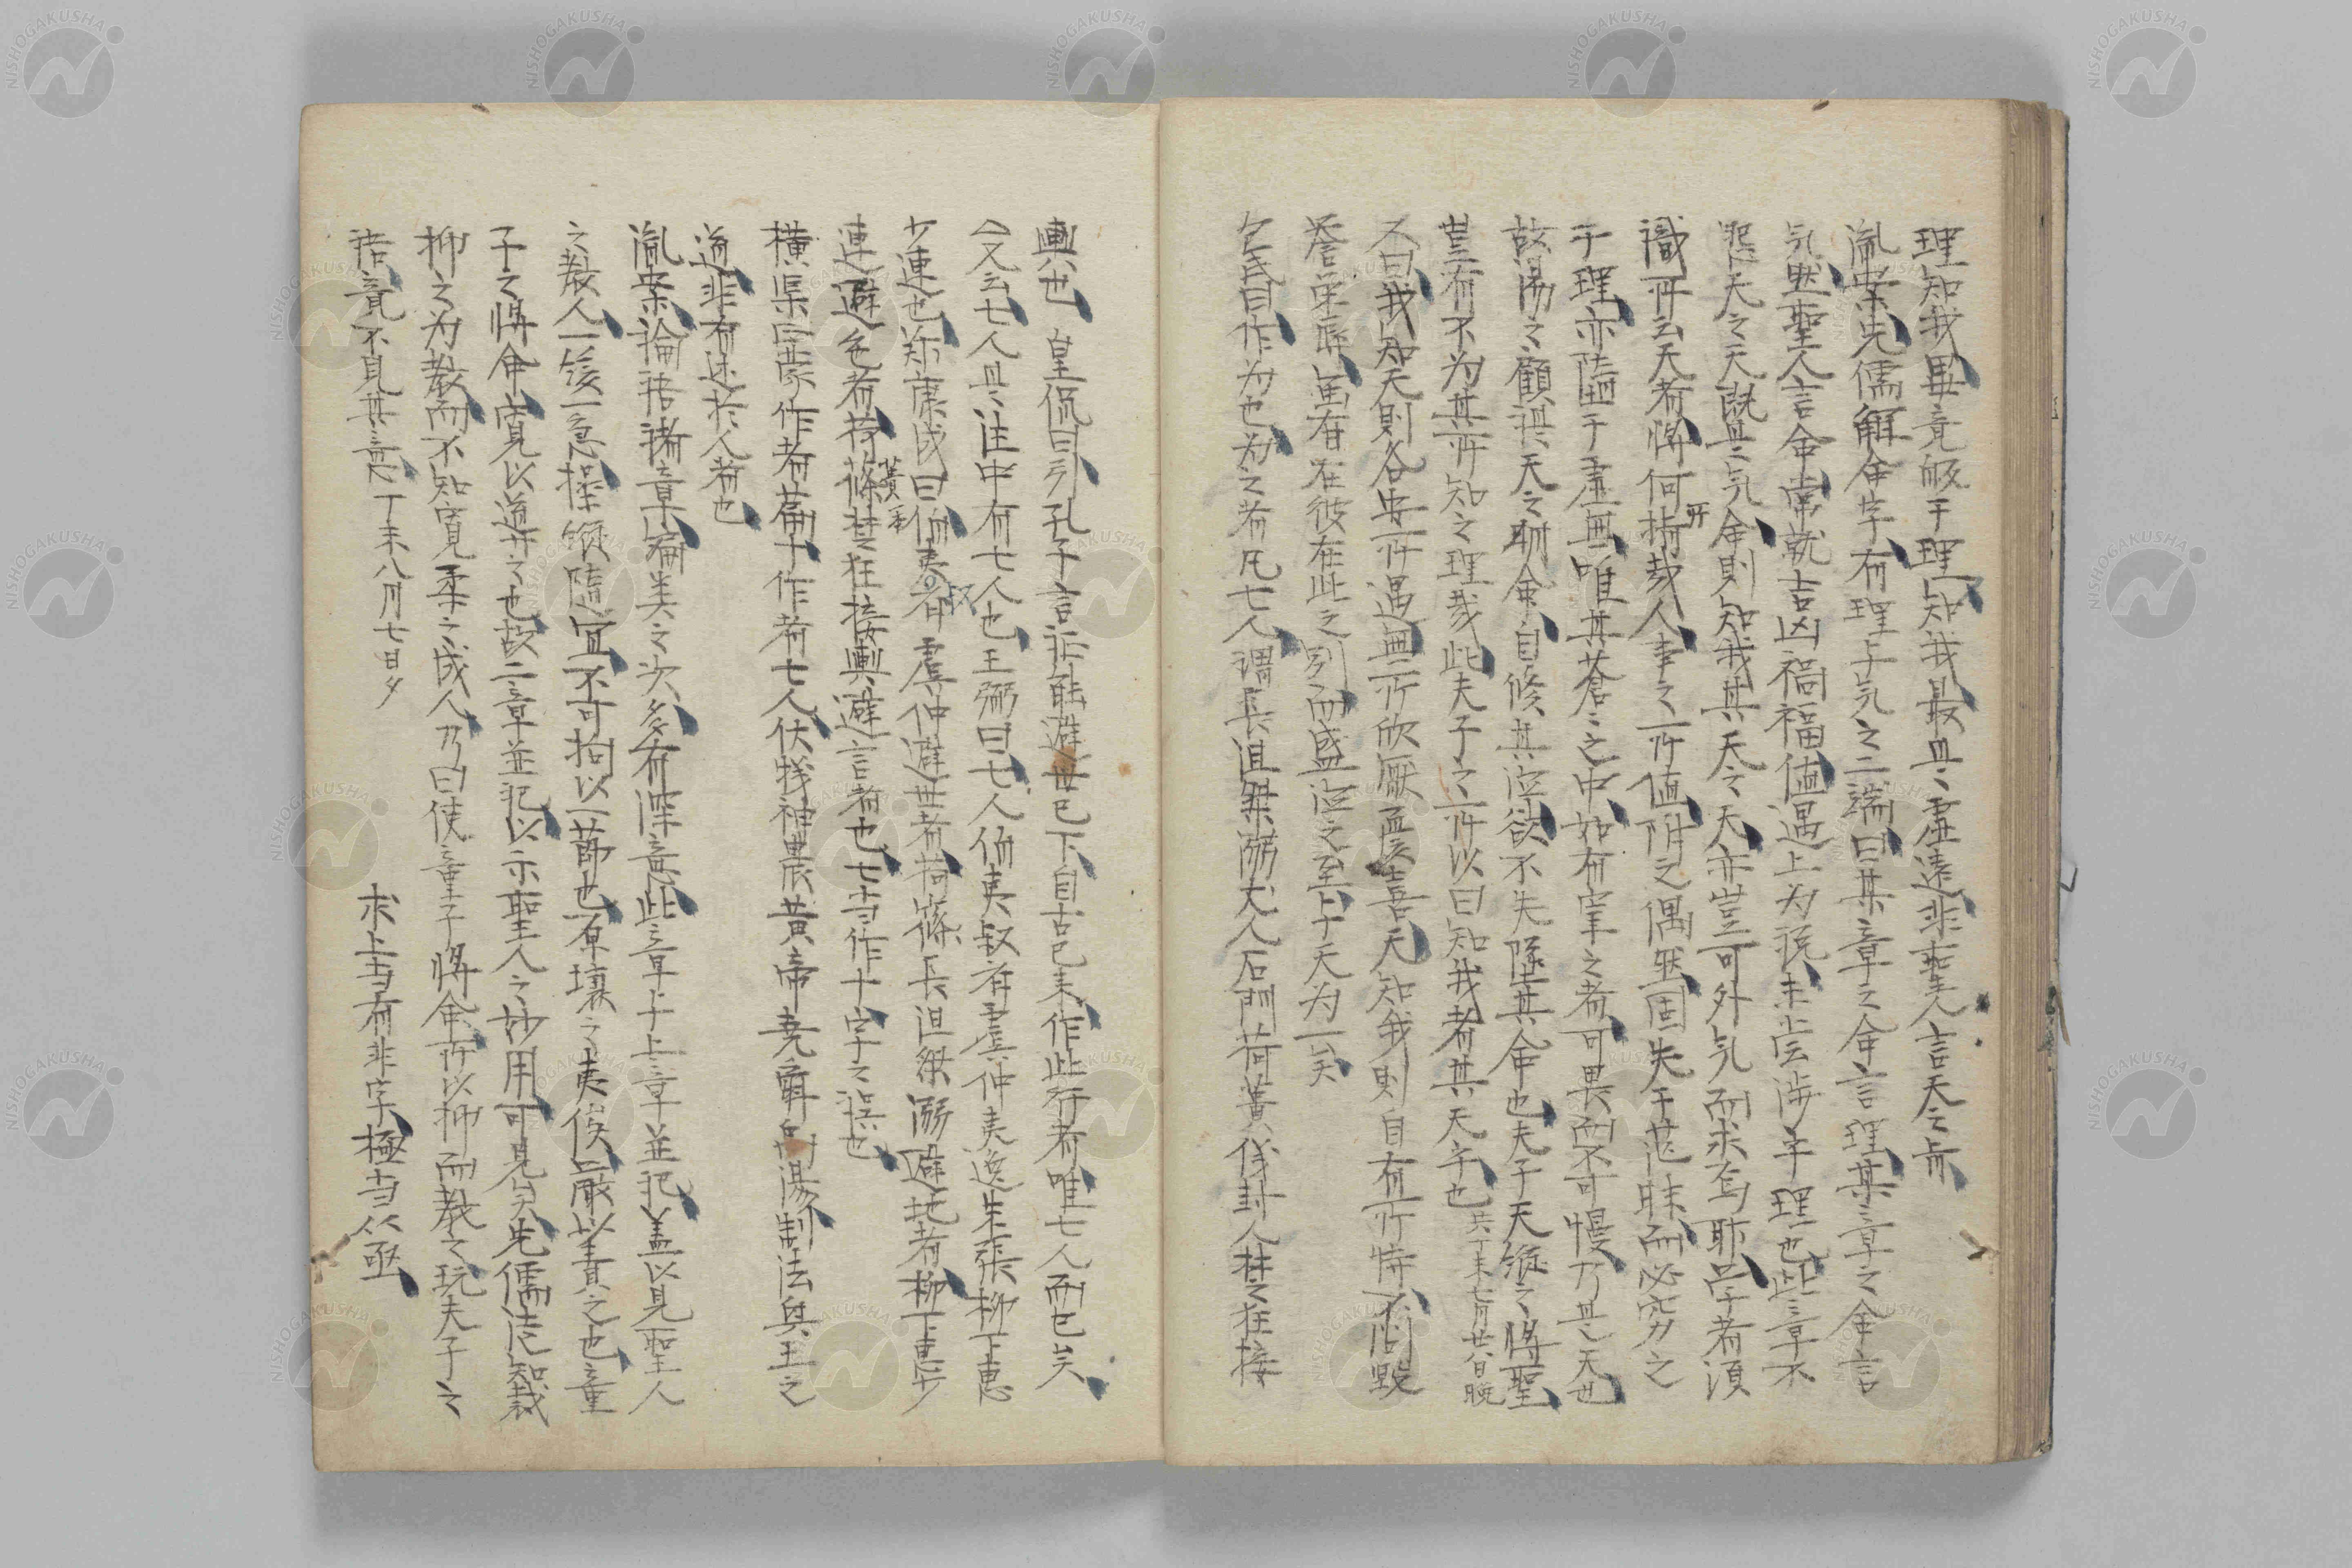 理知我畢竟皈于理知我最是虛遠非聖人言天之旨
胤案先儒解命字有理与気之二端曰某章之命言理某章之命言
気然聖人言命常就吉凶禍福値遇上为説未嘗渉乎理也此章不
怨天之天既是気命則知我其天之天亦豈可外気而求焉耶学者須
識所云天者将何所指哉人事之所値附之偶然固失于茫昧而必窮之
于理亦陥于虛無唯其蒼〻之中如有宰之者可畏而不可慢乃是天也
故湯之顧諟天之明命自修其徳欲不失墜其命也夫子天縦之将聖
豈有不为其所知之理哉此夫子之所以曰知我者其天乎也 共丁未七月廿八日晩
又曰我知天則各安所遇無所欣厭孟 吾天知我則自有所恃不問毀
誉栄辱 有在彼在此之別而盛徳之至与天为一矣
包氏曰作为也为之者凡七人謂長沮桀溺丈人石門荷蕢儀封人楚狂接
輿也 皇侃曰引孔子言証能避世已下自古已来作此行者唯七人而已矣
又云七人是注中有七人也王弼曰七人伯夷叔斉虞仲夷逸朱張柳下恵
少連也鄭康成曰伯夷叔斉虞仲避世者荷蓧長沮桀溺避地者柳下恵少
連避色者荷蕢荷蓧楚狂接輿避言者也七当作十字之誤也
横渠正蒙作者篇十作者七人伏羲神農黄帝堯舜禹湯制法興王之
道非有述於人者也
胤案論語諸章編类之次多有深意此章与上章並記蓋以見聖人
之教人一緩一急操縦随宜不可拘以一節也原壤之夷俟厳以責之也童
子之将命寛以導之也故二章並記以示聖人之妙用可見矣先儒徒知裁
抑之为教而不知寛柔之成人乃曰使童子将命所以抑而教之玩夫子之
語竟不見其意 丁未八月七日夕
求上当有非字極当从亟